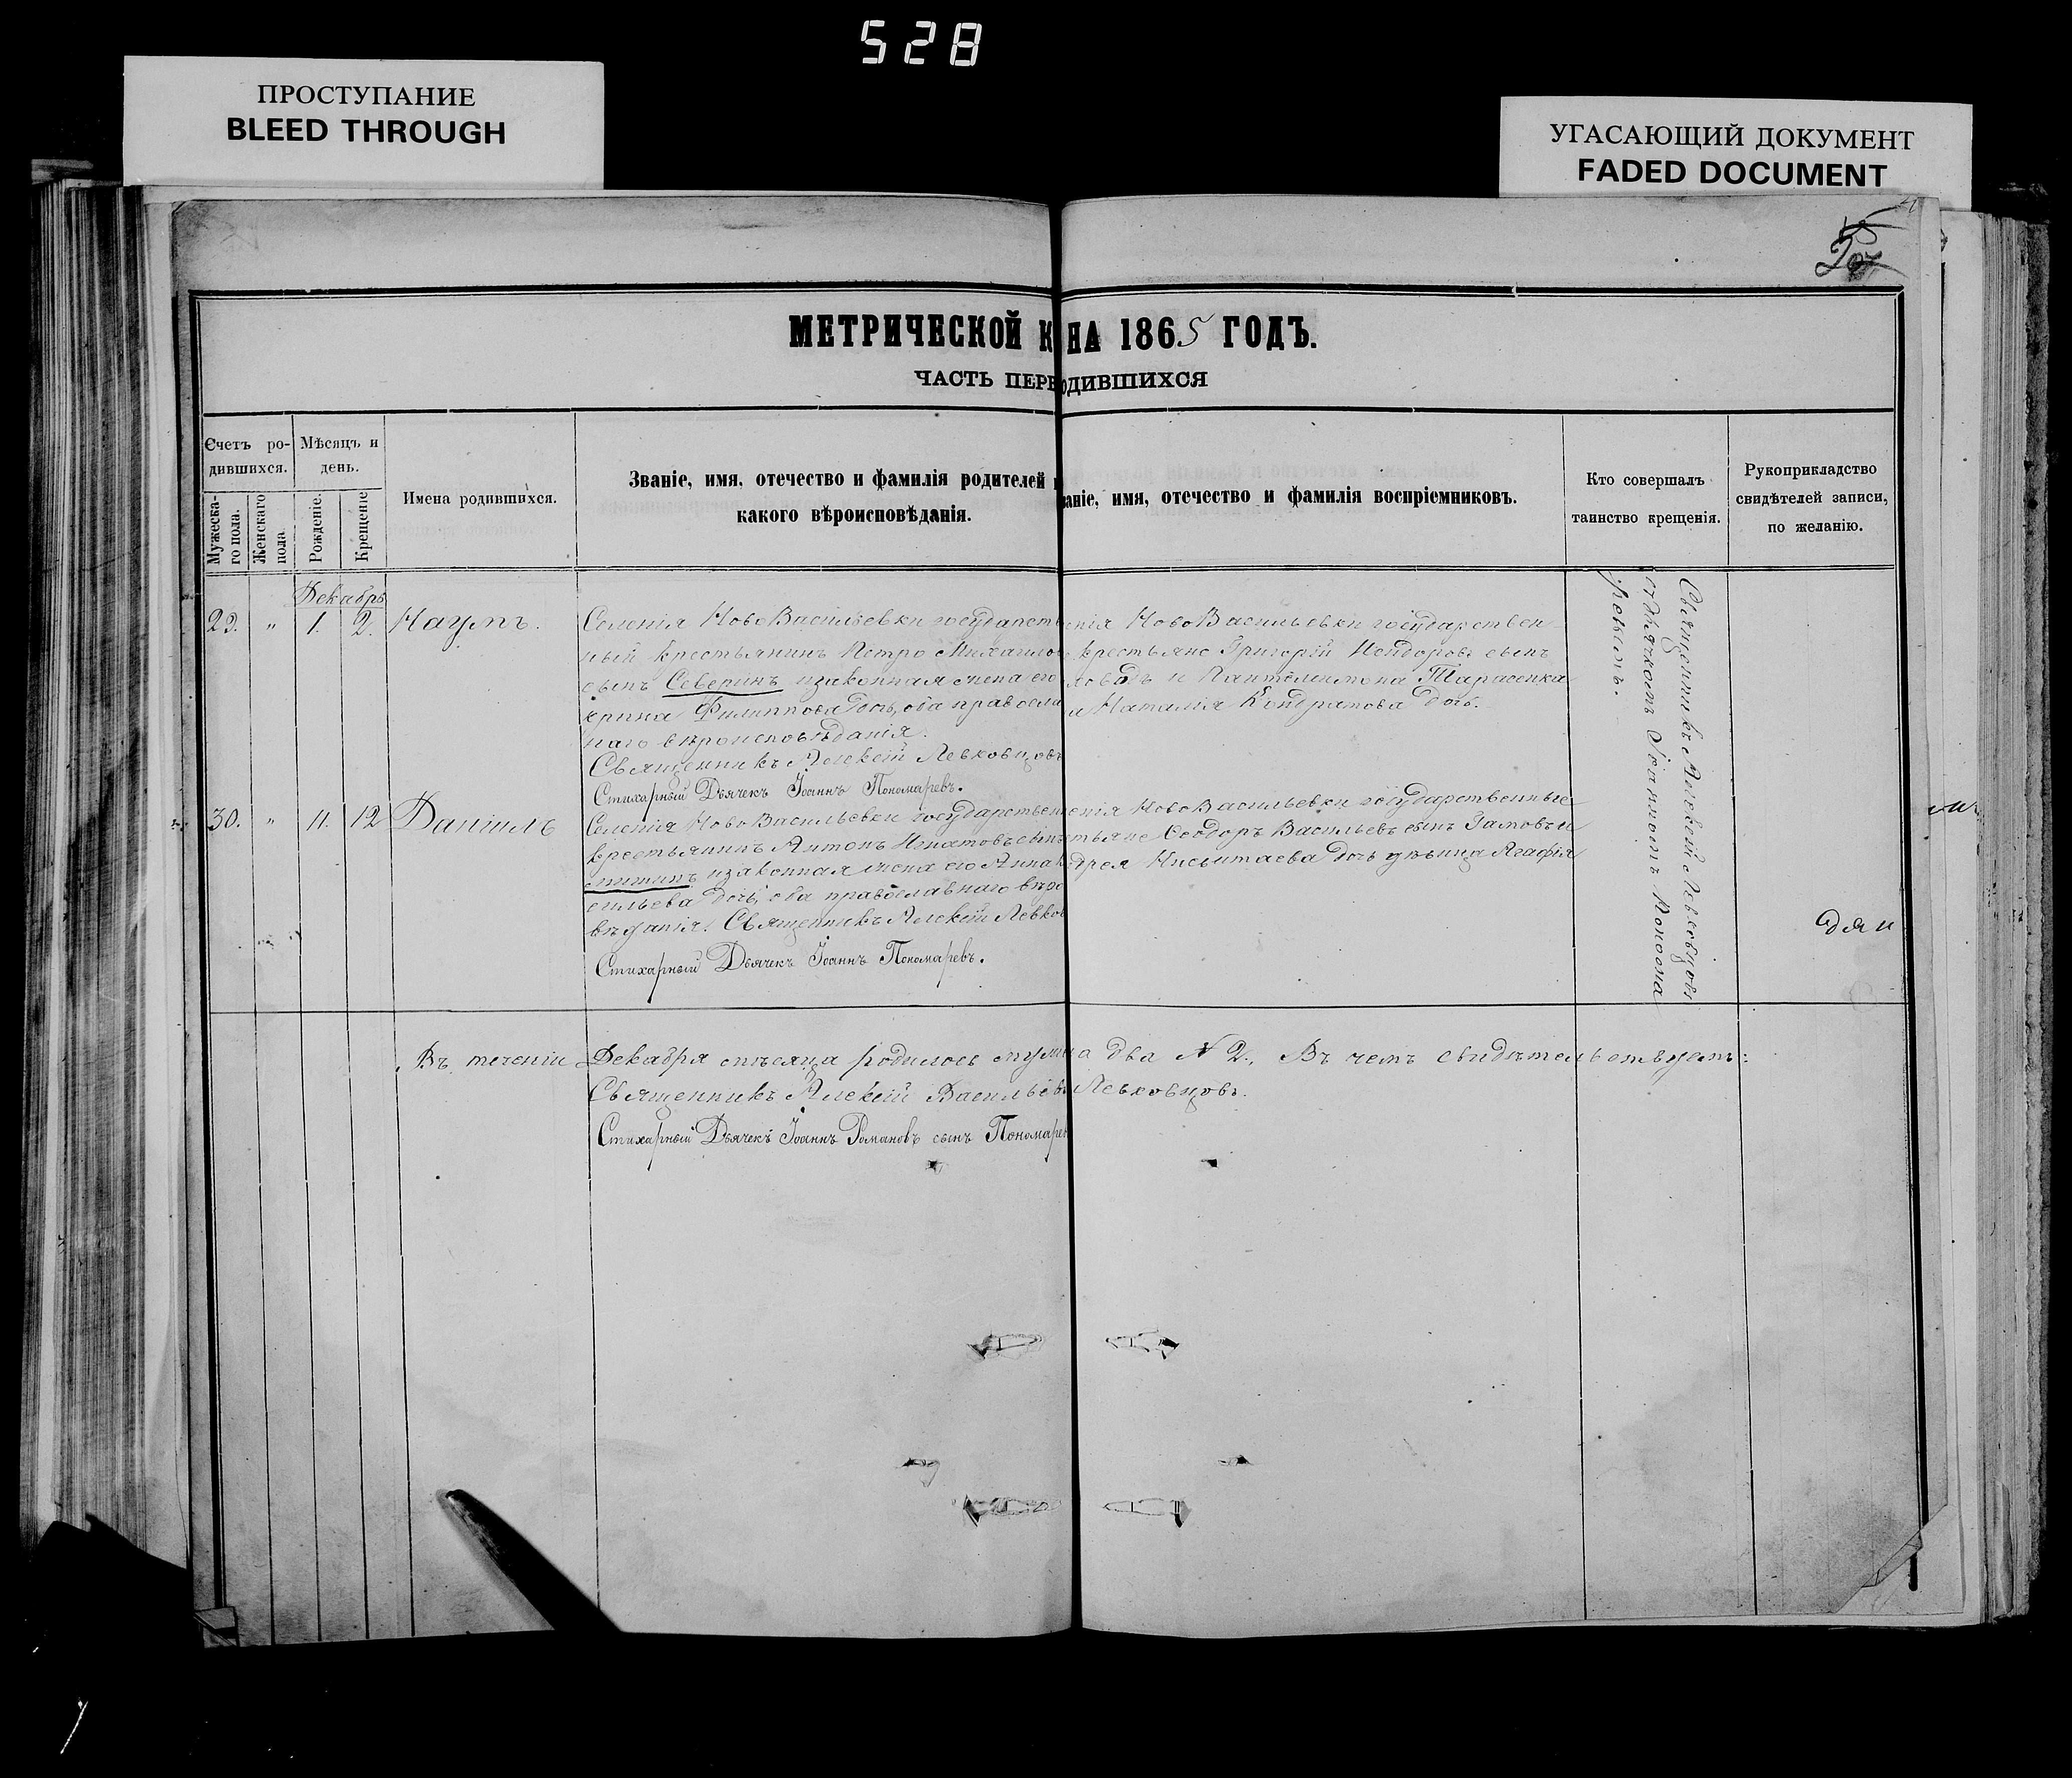 528
ПРОСТУПАНИЕ
BLEED THROUGH
УГАСАЮЩИЙ ДОКУМЕНТ
FADED DOCUMENT
МЕТРИЧЕСКОЙ К НА 1865 ГОДЪ.
ЧАСТЬ ПЕРВ ОДИВШИХСЯ
Счетъ ро-
дившихся.
Мужеска-
го пола.
Женскаго
пола
Мѣсяцъ и
день.
Рожденіе.
Крещеніе
Имена родившихся.
Званіе, имя, отечество и фамилія родителей и
какого вѣроисповѣданія.
ваніе, имя, отечество и фамилія воспріемниковъ.
Кто совершалъ
таинство крещенія.
Рукоприкладство
свидѣтелей записи,
по желанію.
Декабрь
29. " 1. 2. Наумъ.
Селенія НовоВасильевки государств
ный крестьянинъ Петро Михаилов
сынъ Северинъ изаконная жена его
ерина Филиппова дочь, оба правосла
наго вѣроисповѣданія.
Священникъ Алексій Левковцовъ
Стихарный Дьячекъ Іоаннъ Пономаревъ.
енія НовоВасильевки государствен
крестьяне Григорій сынъ
и Пантелимона Тарасенка
и Наталія Кондратова дочь.
30. " 11. 12 Даніилъ
Селенія НовоВасильевки государствен
крестьянинъ Антонъ Игнатовъ сынъ
изаконная жена его Анна
сильева дочь, оба православнаго вѣро
вѣданія. Священникъ Алексій Левков
Стихарный Дьячекъ Іоаннъ Пономаревъ.
енія НовоВасильевки государственные
стьяне Ѳеодоръ Васильевъ сынъ и
дочь дѣвица Агафія
Священникъ Алексій Левковцовъ
съ Дьячкомъ Іоанномъ Понома
ревымъ.
Въ теченіи Декабря мѣсяца родилось муж а два № 2., Въ чемъ свидѣтельствуемъ:
Священникъ Алексій Васильевъ Левковцовъ.
Стихарный Дьячекъ Іоаннъ Романовъ сынъ Пономарев